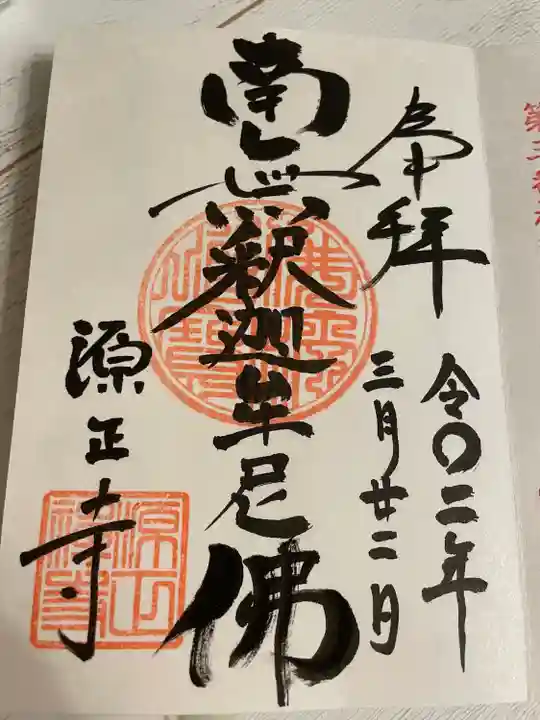 奉拝
令〇二年
三月廿二日
南無釈迦牟尼佛
源正寺